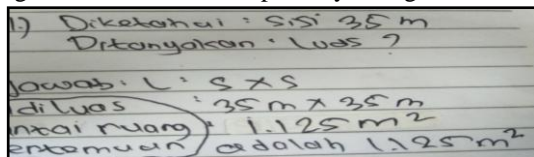 1.) Diketahui : Sisi 35 m
Ditanyakan : Luas ?
Jawab : L : S x S
di luas : 35 m x 35 m
ntai ruang : 1.125 m²
ertemuan adalah 1.125 m²